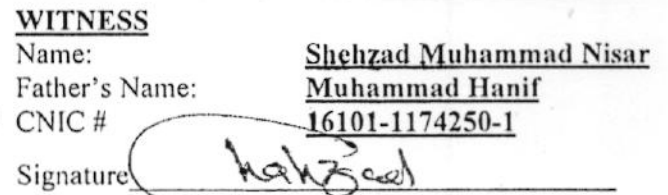 WITNESS
Name: Shehzad Muhammad Nisar
Father's Name: Muhammad Hanif
CNIC # 16101-1174250-1
Signature